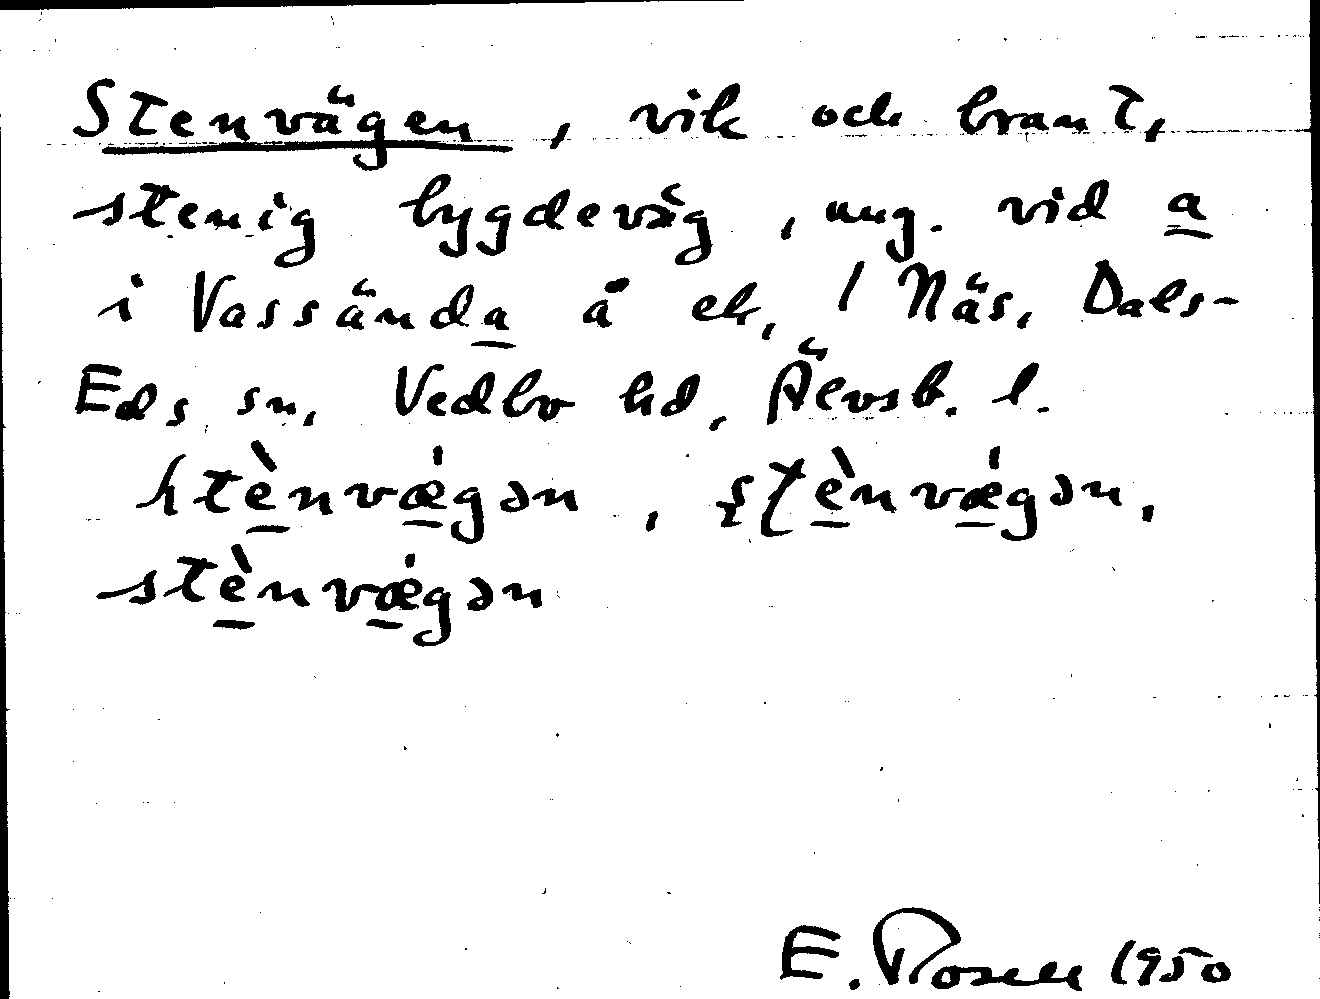 Stenvägen, vik och brant,
stenig bygdeväg, ung. vid a
i Vassända å ek, 1 Näs, Dals-
Eds sn, Vedbo hd, Älvsb. l.
stènvǽgən, ştènvǽgən,
stènvǽgən
E. Rosell 1950